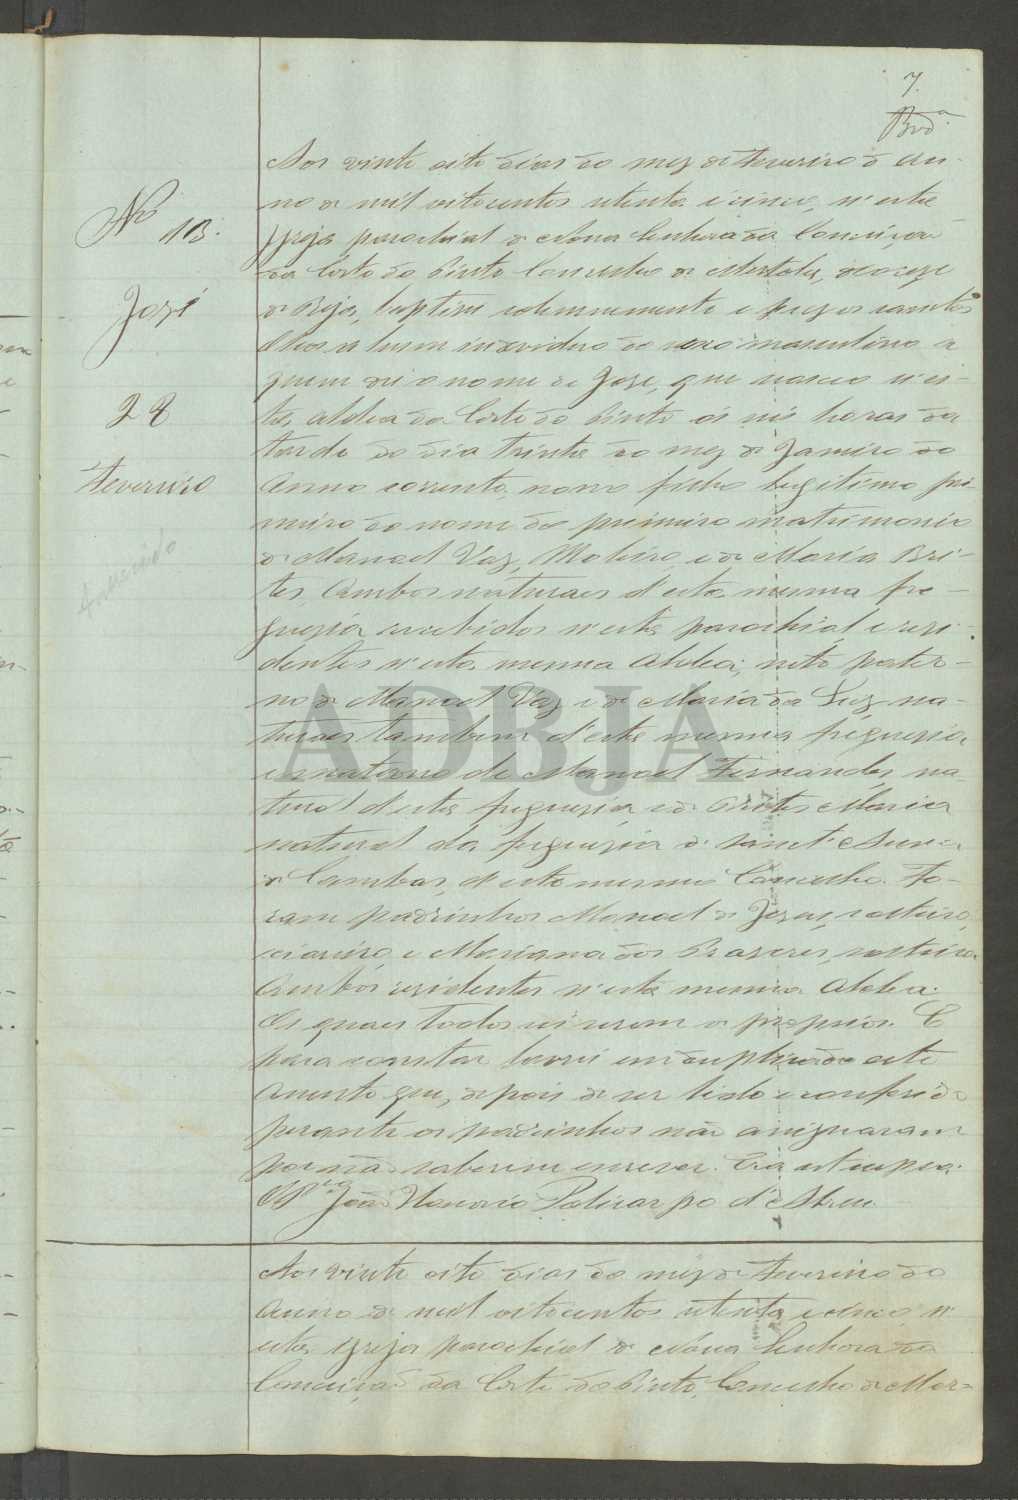 7.
Nº 13.
José
28
Fevereiro
Aos vinte oito dias do mez de Fevereiro do An-
no de mil oitocentos setenta e cinco, n'esta
Igreja parochial de Nossa Senhora da Conceiçao
da Corte do Pinto Concelho de Mertola, diocese
de Beja, baptizei solemnemente e puz os sanctos
Oleos a hum individuo do sexo masculino a
quem dei o nome de José, que nasceo n'es-
ta aldea da Corte do Pinto ás seis horas da
tarde do dia trinta do mez de Janeiro do
Anno corrente, filho legitimo pri-
meiro do nome do primeiro matrimonio
de Manoel Vaz, Moleiro, e de Maria Bri-
tes, Ambos naturaes d'esta mesma fre-
guezia recebidos n'esta parochial e resi-
dentes n'esta mesma Aldea; neto pater-
no de Manoel Vaz e de Maria da Luz na-
turaes tambem d'esta mesma freguezia
e materno de Manoel Fernandes, na-
tural d'esta freguezia e de Brites Maria
natural da freguezia de Sant'Anna
de Cambas, d'este mesmo Concelho. Fo-
ram padrinhos Manoel de Jezus, solteiro,
e Mariana dos Prazeres, solteira
Ambos rezidentes n'esta mesma Aldea.
Os quaes todos sei serem os proprios. E
para constar lavrei em duplicado este
Assento que, depois de ser lido e conferido
perante os padrinhos não assignaram
por não saberem escrever. Era ut supra.
João Honorio Policarpo d'Abreu
Aos vinte oito dias do mez de Fevereiro do
Anno de mil oitocentos setenta e cinco, n'
esta Igreja parochial de Nossa Senhora da
Conceição da Corte do Pinto, Concelho de Mer-
ADBJA